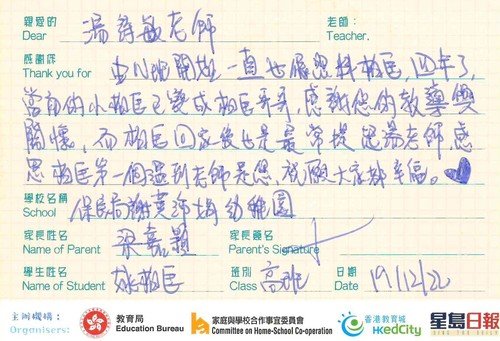 親愛的 老師：
Dear 湯 敏老師 Teacher,
感謝你
Thank you for 由N班開始一直也 料柏匡,四年了,
當初的小柏匡已變成柏匡哥哥,感謝您的教導與
關懷,而柏匡回家後也是最常提 湯老師,感
恩柏匡第一個遇到老師是您,祝願大家都幸福。
學校名稱
School 保良局謝黃沛 幼稚園
家長姓名 家長簽名
Name of Parent 梁嘉 Parent's Signature
學生姓名 班別 日期
Name of Student 姚柏匡 Class 高班 Date 19/12/22
主辦機構： 教育局 家庭與學校合作事宜委員會 香港教育城 星島日報
Organisers: Education Bureau Committee on Home-School Co-operation HKedCity SING TAO DAILY